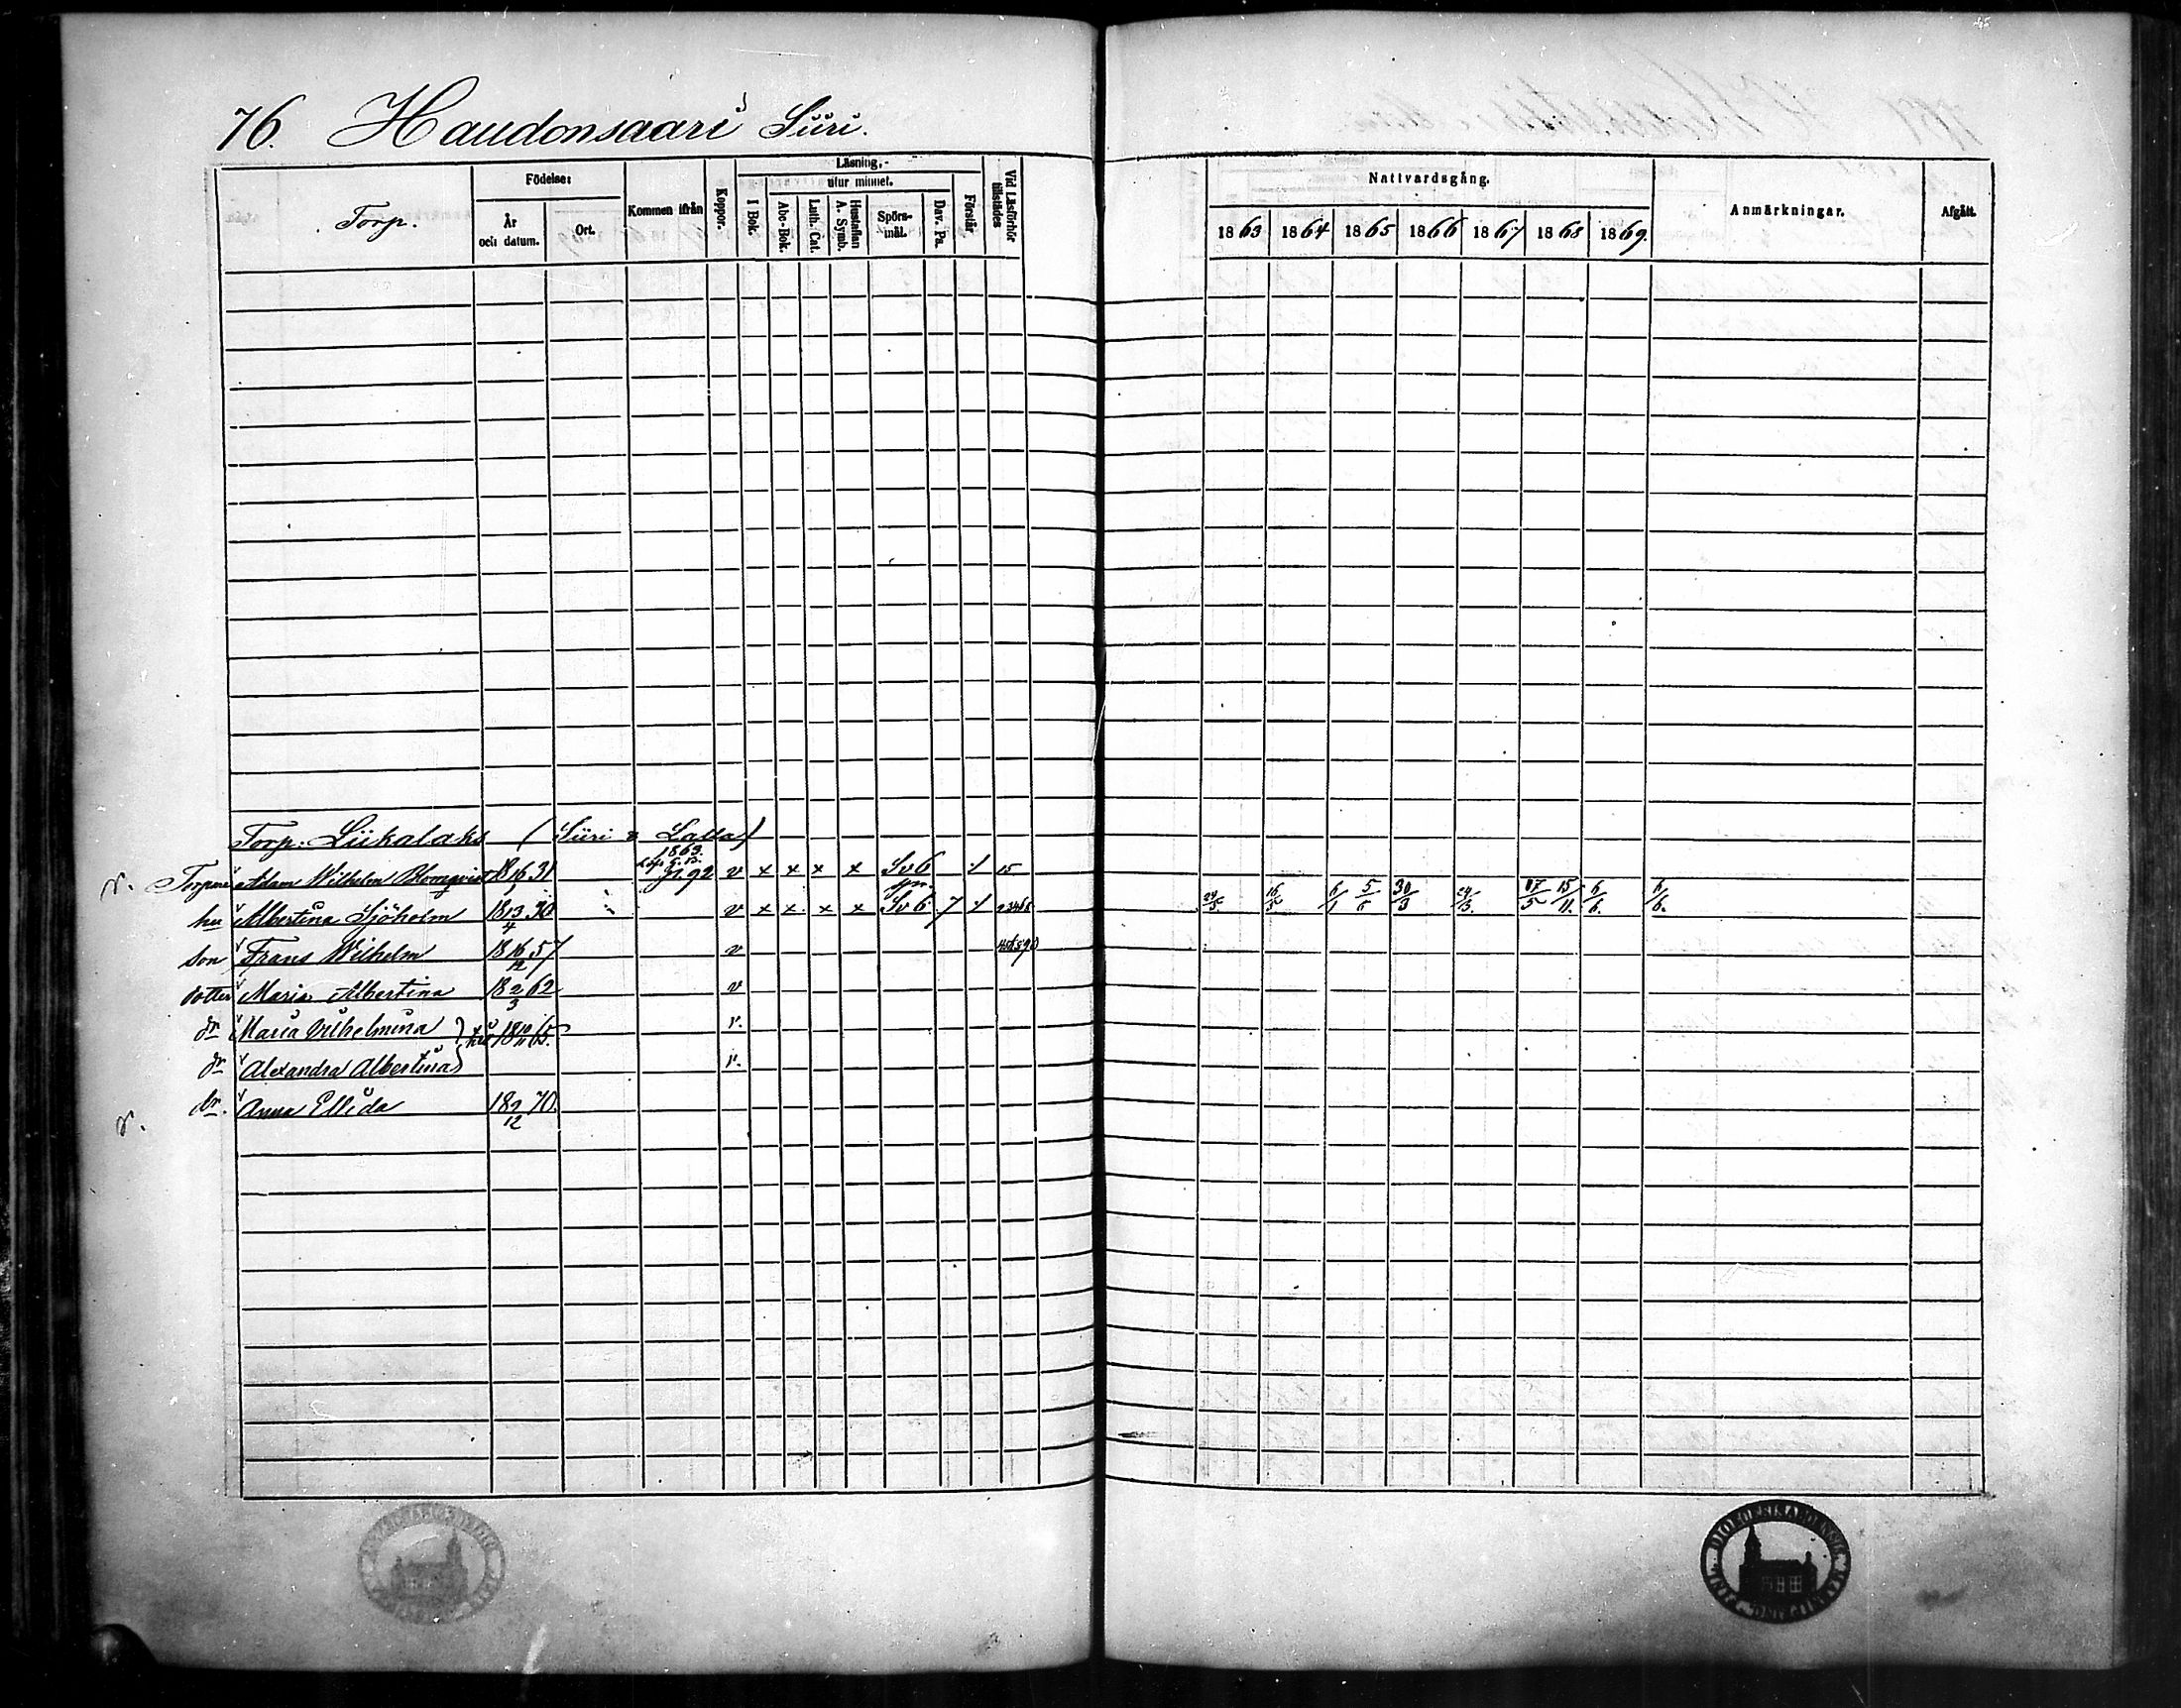 76. Haudonsaari Siiri.
Torp.
Födelse:
År och datum.
Ort.
Kommen ifrån
Koppor.
Läsning,
I Bok.
utur minnet.
Abc-Bok.
Luth. Cat.
Hustaflan A. Symb.
Spörs-mål.
Dav. Ps.
Förstår
Vid Läsförhör tillstädes
Nattvardsgång.
1863 1864 1865 1866 1867 1868 1869.
Anmärkningar.
Afgått.
Torp. Liikalaks (Siiri & Lassas)
Adam Wilhelm Blomqvist 18 16/1 31 1863. 92 v x x x x Sv 6 15
hu Albertina Sjöholm 18 13/4 30 v x x x x Sv 6 7 24/5 16/5 6/1 5/6 30/3 24/3 15/11 6/6 6/6.
son Frans Wilhelm 18 16/12 57 v
dotter Maria Albertina 18 2/3 62 v
dr Maria Vilhelmina 18 10/11 65. v.
dr Alexandra Albertina v.
dr. Anna Ellida 18 2/12 70.